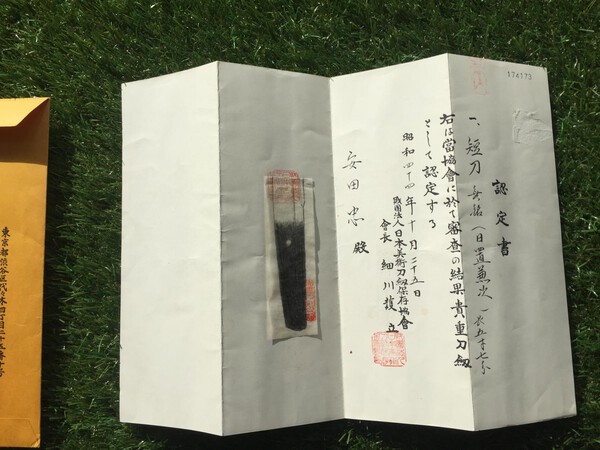 174173
認定書
一、短刀 無銘(日置兼次) 長五寸七分
右は當協會に於て審査の結果貴重刀剱
として認定する
昭和四十四年十月二十五日
財團法人日本美術刀剱保存協會
會長 細川護立
安田忠殿
東京都渋谷区代々木四丁目二十五番十号